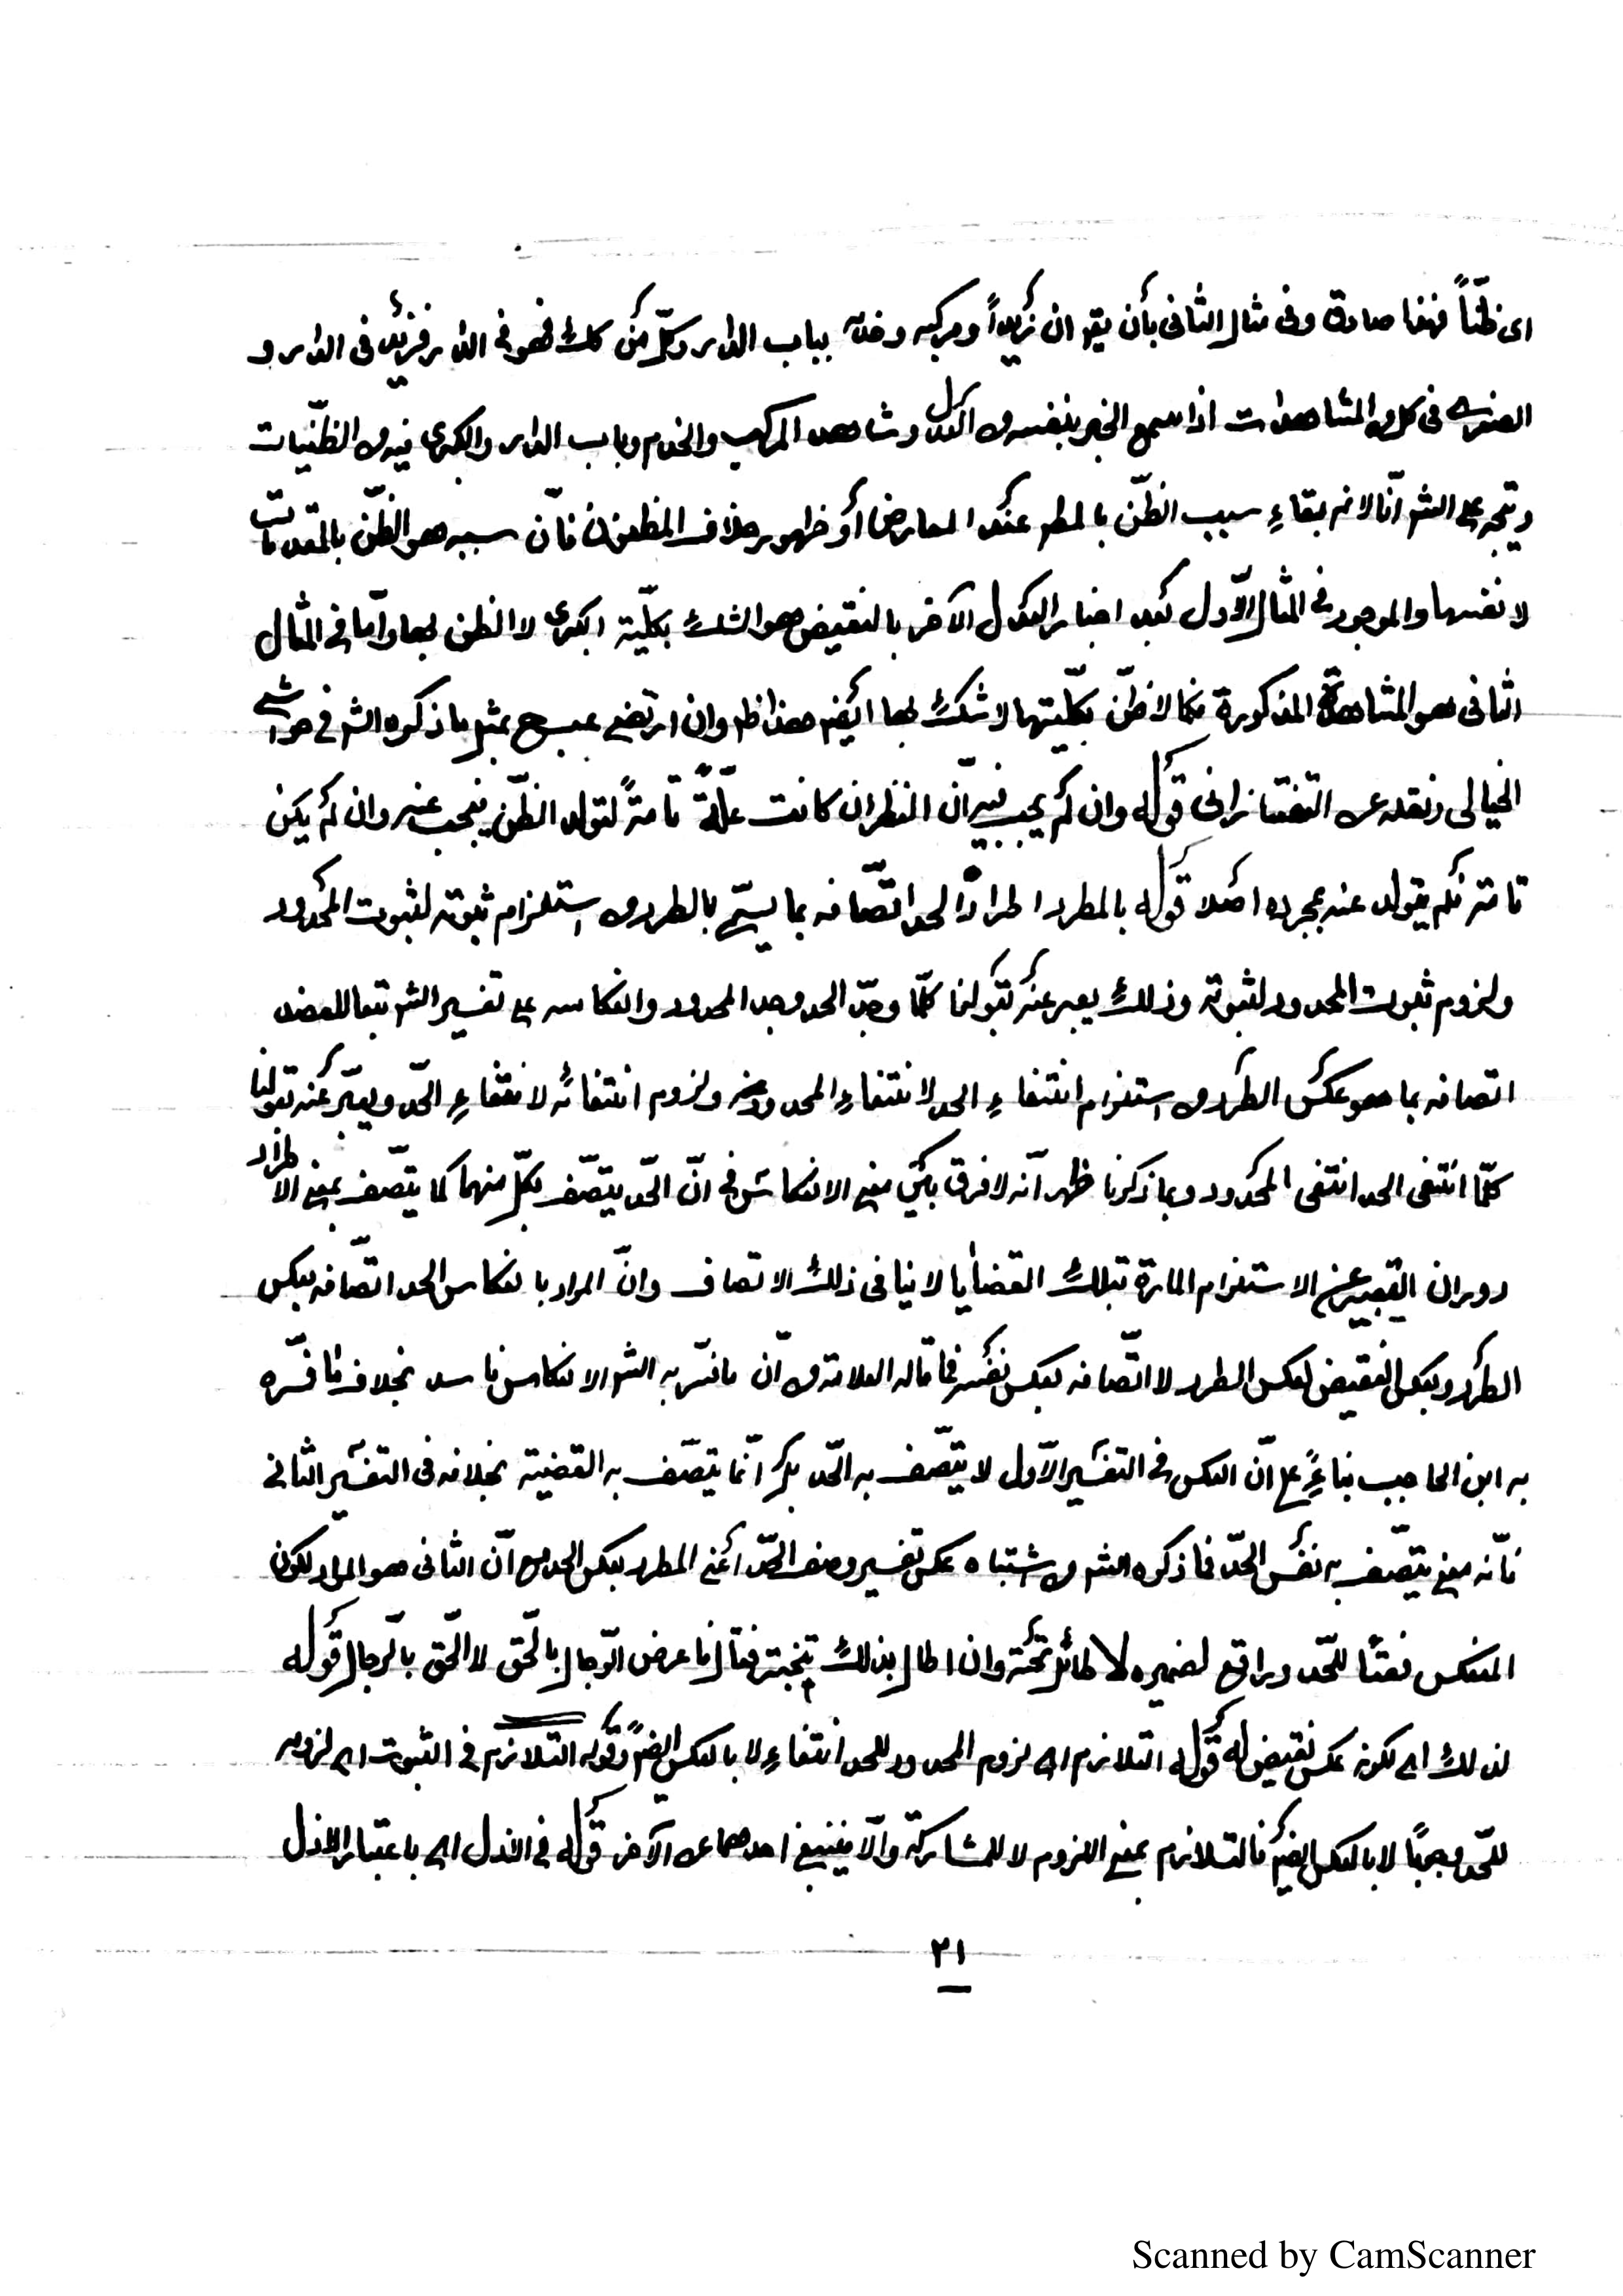 اى ظنّاً فهذا صادق وفى مثال الثانى بأن يقو ان زيداً ومركبه وخدمه بباب الدار وكلّ من كك فهو فى الدار فزيد فى الدار و
الصغرى فى كل من المشاهدات اذا سمع الخبر بنفسه من العدل وشاهد المركب والخدم وباب الدار والكبرى فيه من الظنّيات
ويتجه على الش أنّا لانم بقاء سبب الظنّ بالمط عند المعارض أو ظهور خلاف المظنون فانّ سببه هو الظنّ بالمقدمات
لا نفسها والموجود فى المثال الأوّل بعد اخبار العدل الآخر بالنقيض هو الشك بكلّية الكبرى لا الظن بها وأمّا فى المثال
الثانى هو المشاهدة المذكورة فكما لا ظنّ بكلّيتها لا شكّ بها ايضم هذا ظ وان ارتضى بمثل ما ذكره الش فى حواشى
الخيالى ونقله عن التفتازانى قوله وان لم يجب فيه أن النظر ان كانت علّةً تامّةً لتولد الظّن فيجب عنه وان لم يكن
تامّة فلم يتولد عنه بمجرده اصلا قوله بالمطرد اطراد الحد اتّصافه بما يسمّى بالطرد من استلزام ثبوته لثبوت المحدود
ولزوم ثبوت المحدود لثبوته وذلك يعبر عنه بقولنا كلّما وجد الحد وجد المحدود وانعكاسه على تفسير الش تبعا للعضد
اتصافه بما هو عكس الطرد من استلزام انتفاء الحد لانتفاء المحدود ولزوم انتفائه لانتفاء الحدّ ويعبّر عنه بقولنا
كلّما انتفى الحد انتفى المحدود وبما ذكرنا ظهر أنّه لا فرق بين معنى الانعكاس فى انّ الحّد يتصّف بكلّ منهما كما يتصّف بمعنى الاطراد
وان التعبير عن الاستلزام المارة بتلك القضايا لا ينافى ذلك الاتصاف وانّ المراد بانعكاس الحد اتّصافه بعكس
الطرد وبعكس النقيض لعكس الطرد لا اتّصافه بعكس نفسه فما قاله العلامة من أنّ ما فسّر به الش الانعكاس فاسد بخلاف ما فسّره
به ابن الحاجب بناءً على أنّ العكس فى التفسير الأوّل لا يتّصف به الحّد بل انّما يتصّف به القضية بخلافه فى التفسير الثانى
فانّه معنى يتصّف به نفس الحدّ فما ذكره الش من اشتباه عكس تفسير وصف الحدّ أعنى المطرد بعكس الحد مع أنّ الثانى هو المراد لكون
المنعكس نعتًا للحّد ورافع لضميره لا طائل تحته وان اطال بذلك تبخيته فقال ما عرض الرّجال بالحّق لا الحّق بالرجال قوله
لذلك اى لكونه عكس نقيض له قوله التلازم اى لزوم المحدود للحد انتفاءً لا بالعكس ايضم وقوله التلازم فى الثبوت اى لزومه
للحّد وجودًا لا بالعكس ايضم فالتلازم بمعنى اللزوم لا للمشاركة وألّا يغنى احدهما عن الآخر قوله فى الاول اى باعتبار الاول
٢١
Scanned by CamScanner